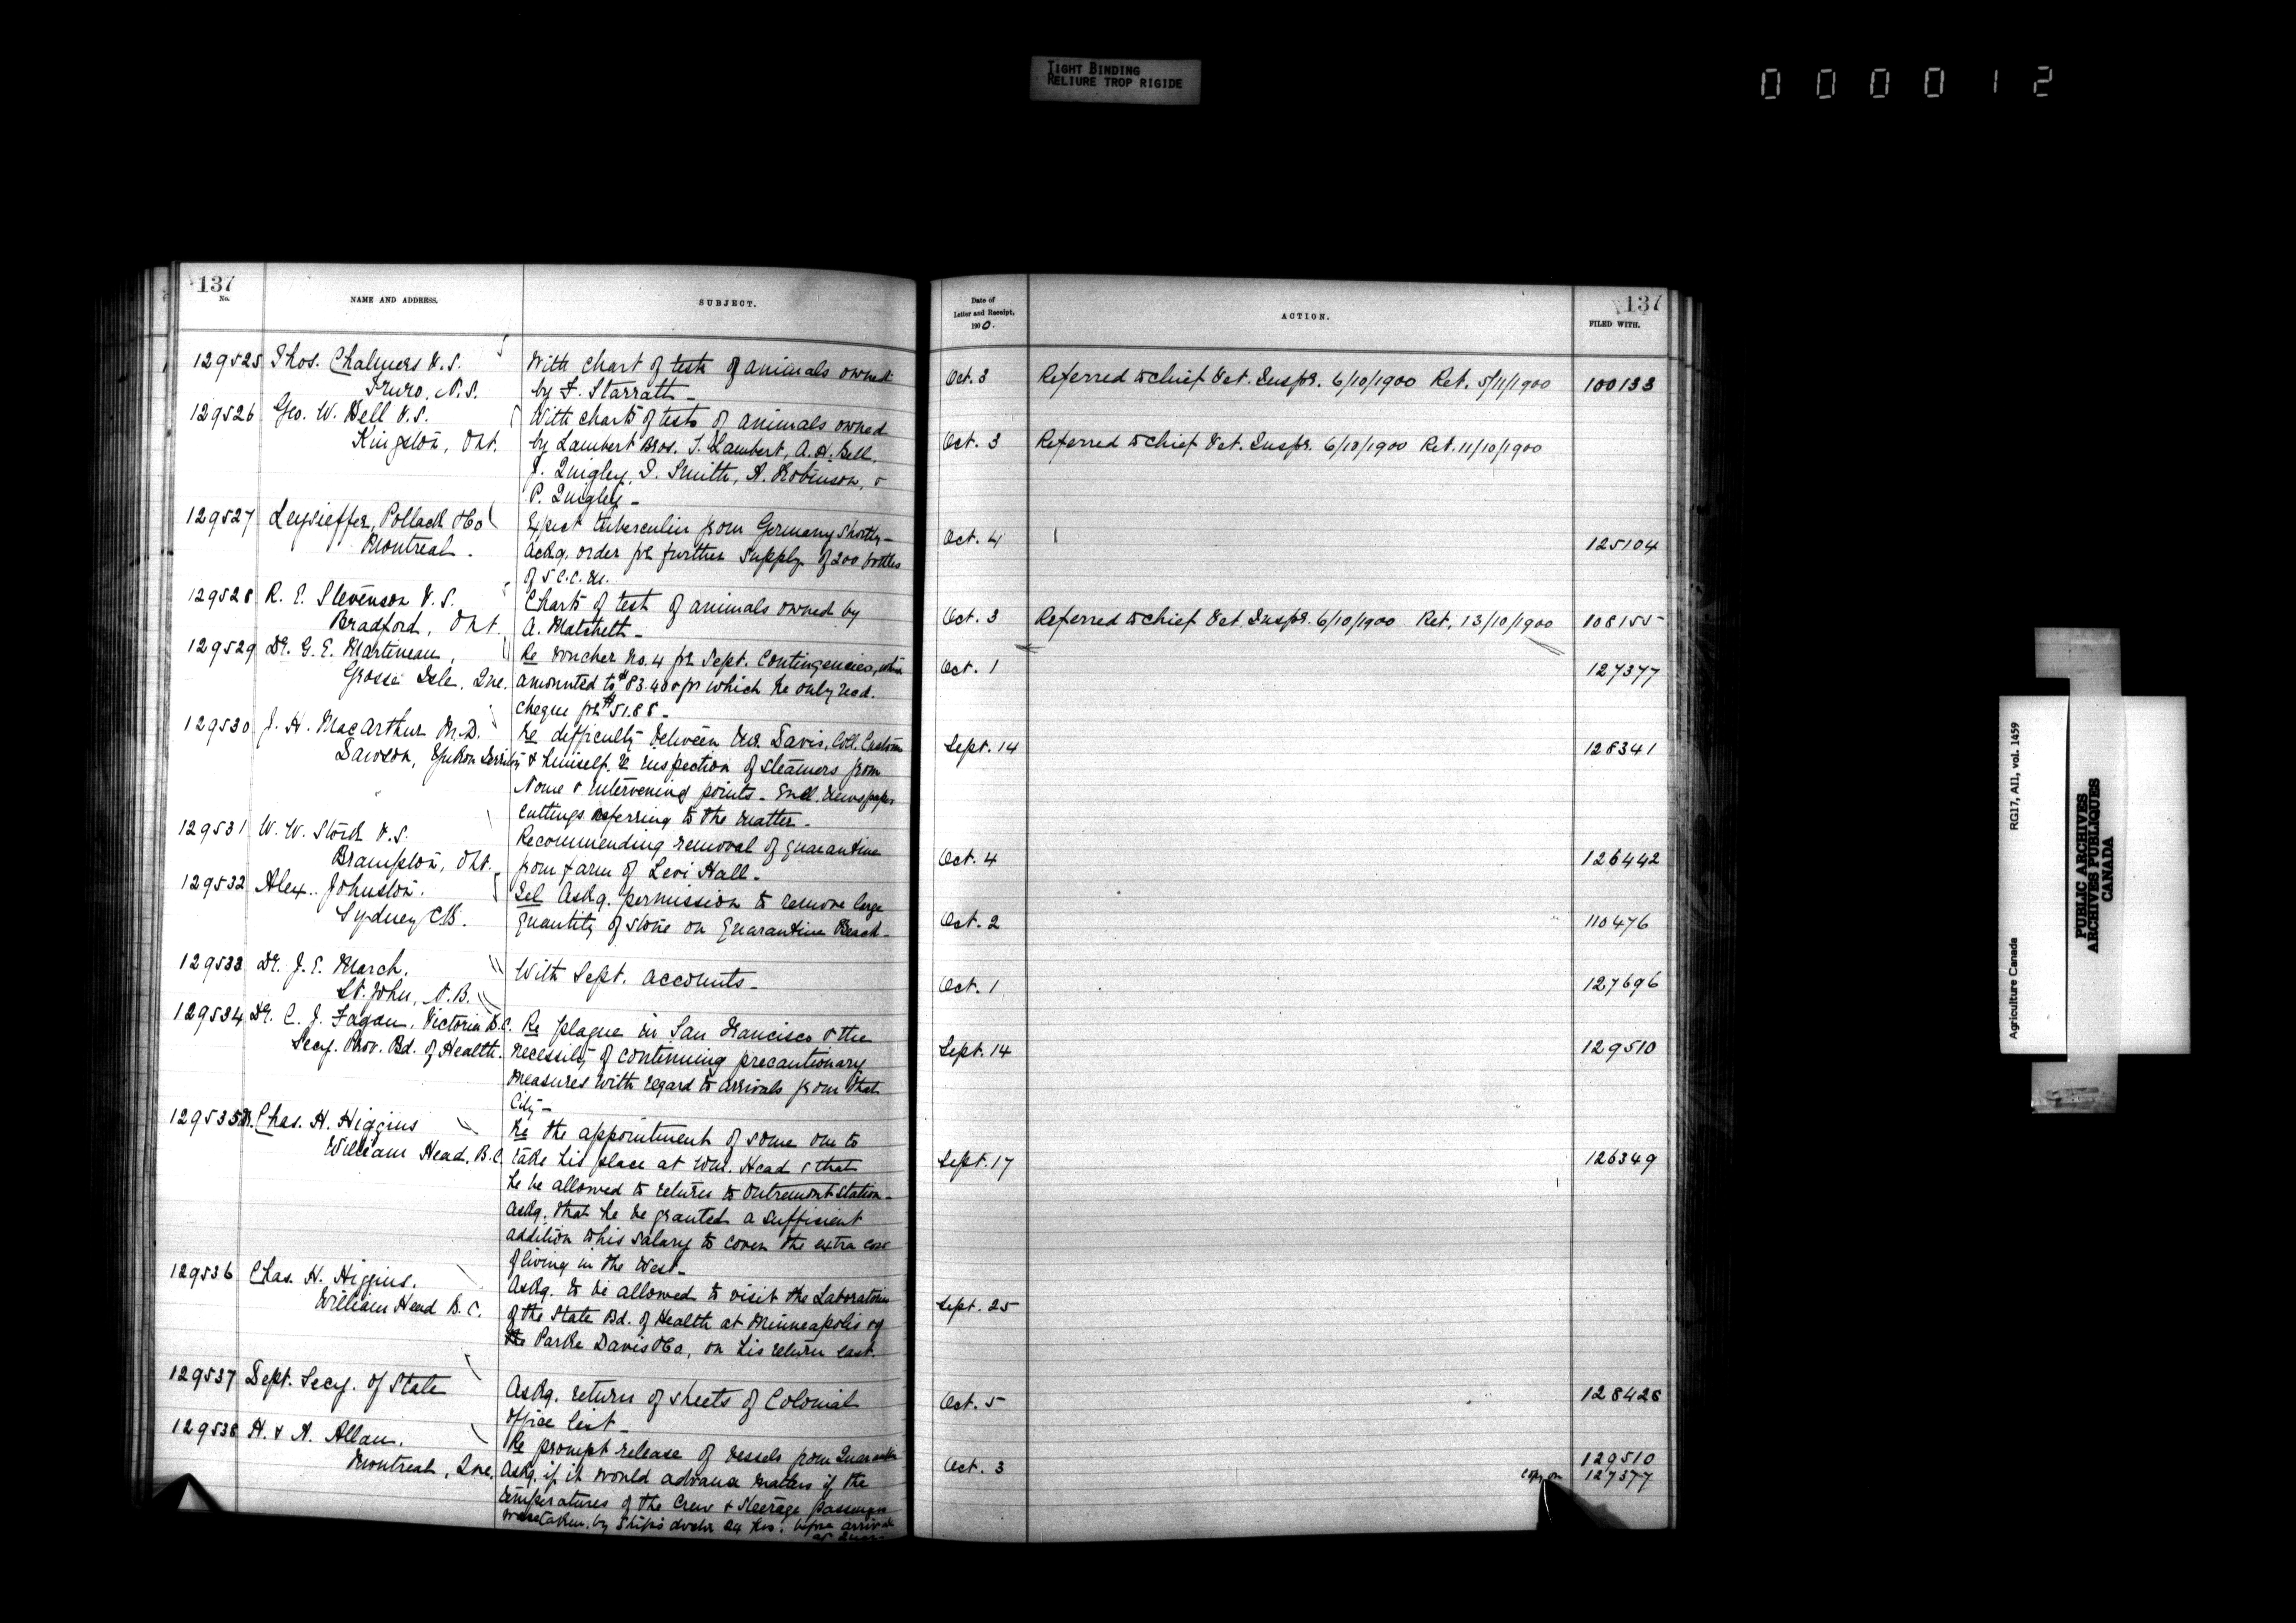 TIGHT BINDING
RELIURE TROP RIGIDE
000012
137
No.
NAME AND ADDRESS.
SUBJECT.
Date of
Letter and Receipt,
1900.
ACTION.
137
FILED WITH.
129525 Thos. Chalmers V.S.
Truro, N.S.
With chart of tests of animals owned
by F. Starratt -
Oct. 3 Referred to Chief Vet. Inspr. 6/10/1900 Ret. 5/11/1900 100133
129526 Geo. W. Bell V.S.
Kingston, Ont.
With charts of tests of animals owned
by Lambert Bros. T. Lambert, A.H. Bell,
J. Quigley, D. Smith, A. Robinson, &
P. Quigley -
Oct. 3 Referred to Chief Vet. Inspr. 6/10/1900 Ret. 11/10/1900
129527 Leyvieffer, Pollack & Co
Montreal.
Expect tuberculin from Germany Shortly -
Ackg. order for further supply of 200 bottles
of 5 c.c. ea.
Oct. 4 125104
129528 R. E. Stevenson V.S.
Bradford, Ont.
Charts of test of animals owned by
A. Matchett -
Oct. 3 Referred to Chief Vet Inspr. 6/10/1900 Ret. 13/10/1900 108155
129529 Dr. G. E. Martineau,
Grosse Isle, Que.
Re voucher No. 4 for Sept. Contingencies, which
amounted to $83.40 & for which he only recd.
cheque for $51.88 -
Oct. 1 127377
129530 J. H. MacArthur M.D.
Dawson, Yukon Territory
Re difficulty between Mr. Davis, Coll. Customs
& himself, re inspection of steamers from
Nome & intervening points - Encl. Newspaper
cuttings referring to the matter -
Sept. 14 128341
129531 W. W. Stork V.S.
Brampton, Ont.
Recommending removal of quarantine
from farm of Levi Hall -
Oct. 4 126442
129532 Alex. Johnston.
Sydney C.B.
Tel Askg. permission to remove large
quantity of stone on Quarantine Beach -
Oct. 2 110476
129533 Dr. J. E. March.
St. John, N.B.
With Sept. accounts -
Oct. 1 127696
129534 Dr. C. J. Fagan, Victoria B.C.
Secy. Prov. Bd. of Health.
Re plague in San Francisco & the
necessity of continuing precautionary
measures with regard to arrivals from that
City -
Sept. 14 129510
129535 Dr. Chas. H. Higgins
William Head, B.C.
Re the appointment of some one to
take his place at Wm. Head & that
he be allowed to return to Outremont Station -
Askg. that he be granted a sufficient
addition to his salary to cover the extra cost
of living in the West -
Sept. 17 126349
129536 Chas. H. Higgins.
William Head B.C.
Askg. to be allowed to visit the Laboratories
of the State Bd. of Health at Minneapolis & of
the Parke Davis & Co, on his return east.
Sept. 25
129537 Dept. Secy. of State
Askg. return of sheets of Colonial
Office list -
Oct. 5 128428
129538 H. & A. Allan.
Montreal, Que.
Re prompt release of vessels from Quarantine
Askg. if it would advance matters if the
temperatures of the Crew & Steerage passengers
were taken by Ship's doctor 24 hrs. before arrival
at Quar.
Oct. 3 129510
Copy on 127377
Agriculture Canada
RG17, AII, vol. 1459
PUBLIC ARCHIVES
ARCHIVES PUBLIQUES
CANADA